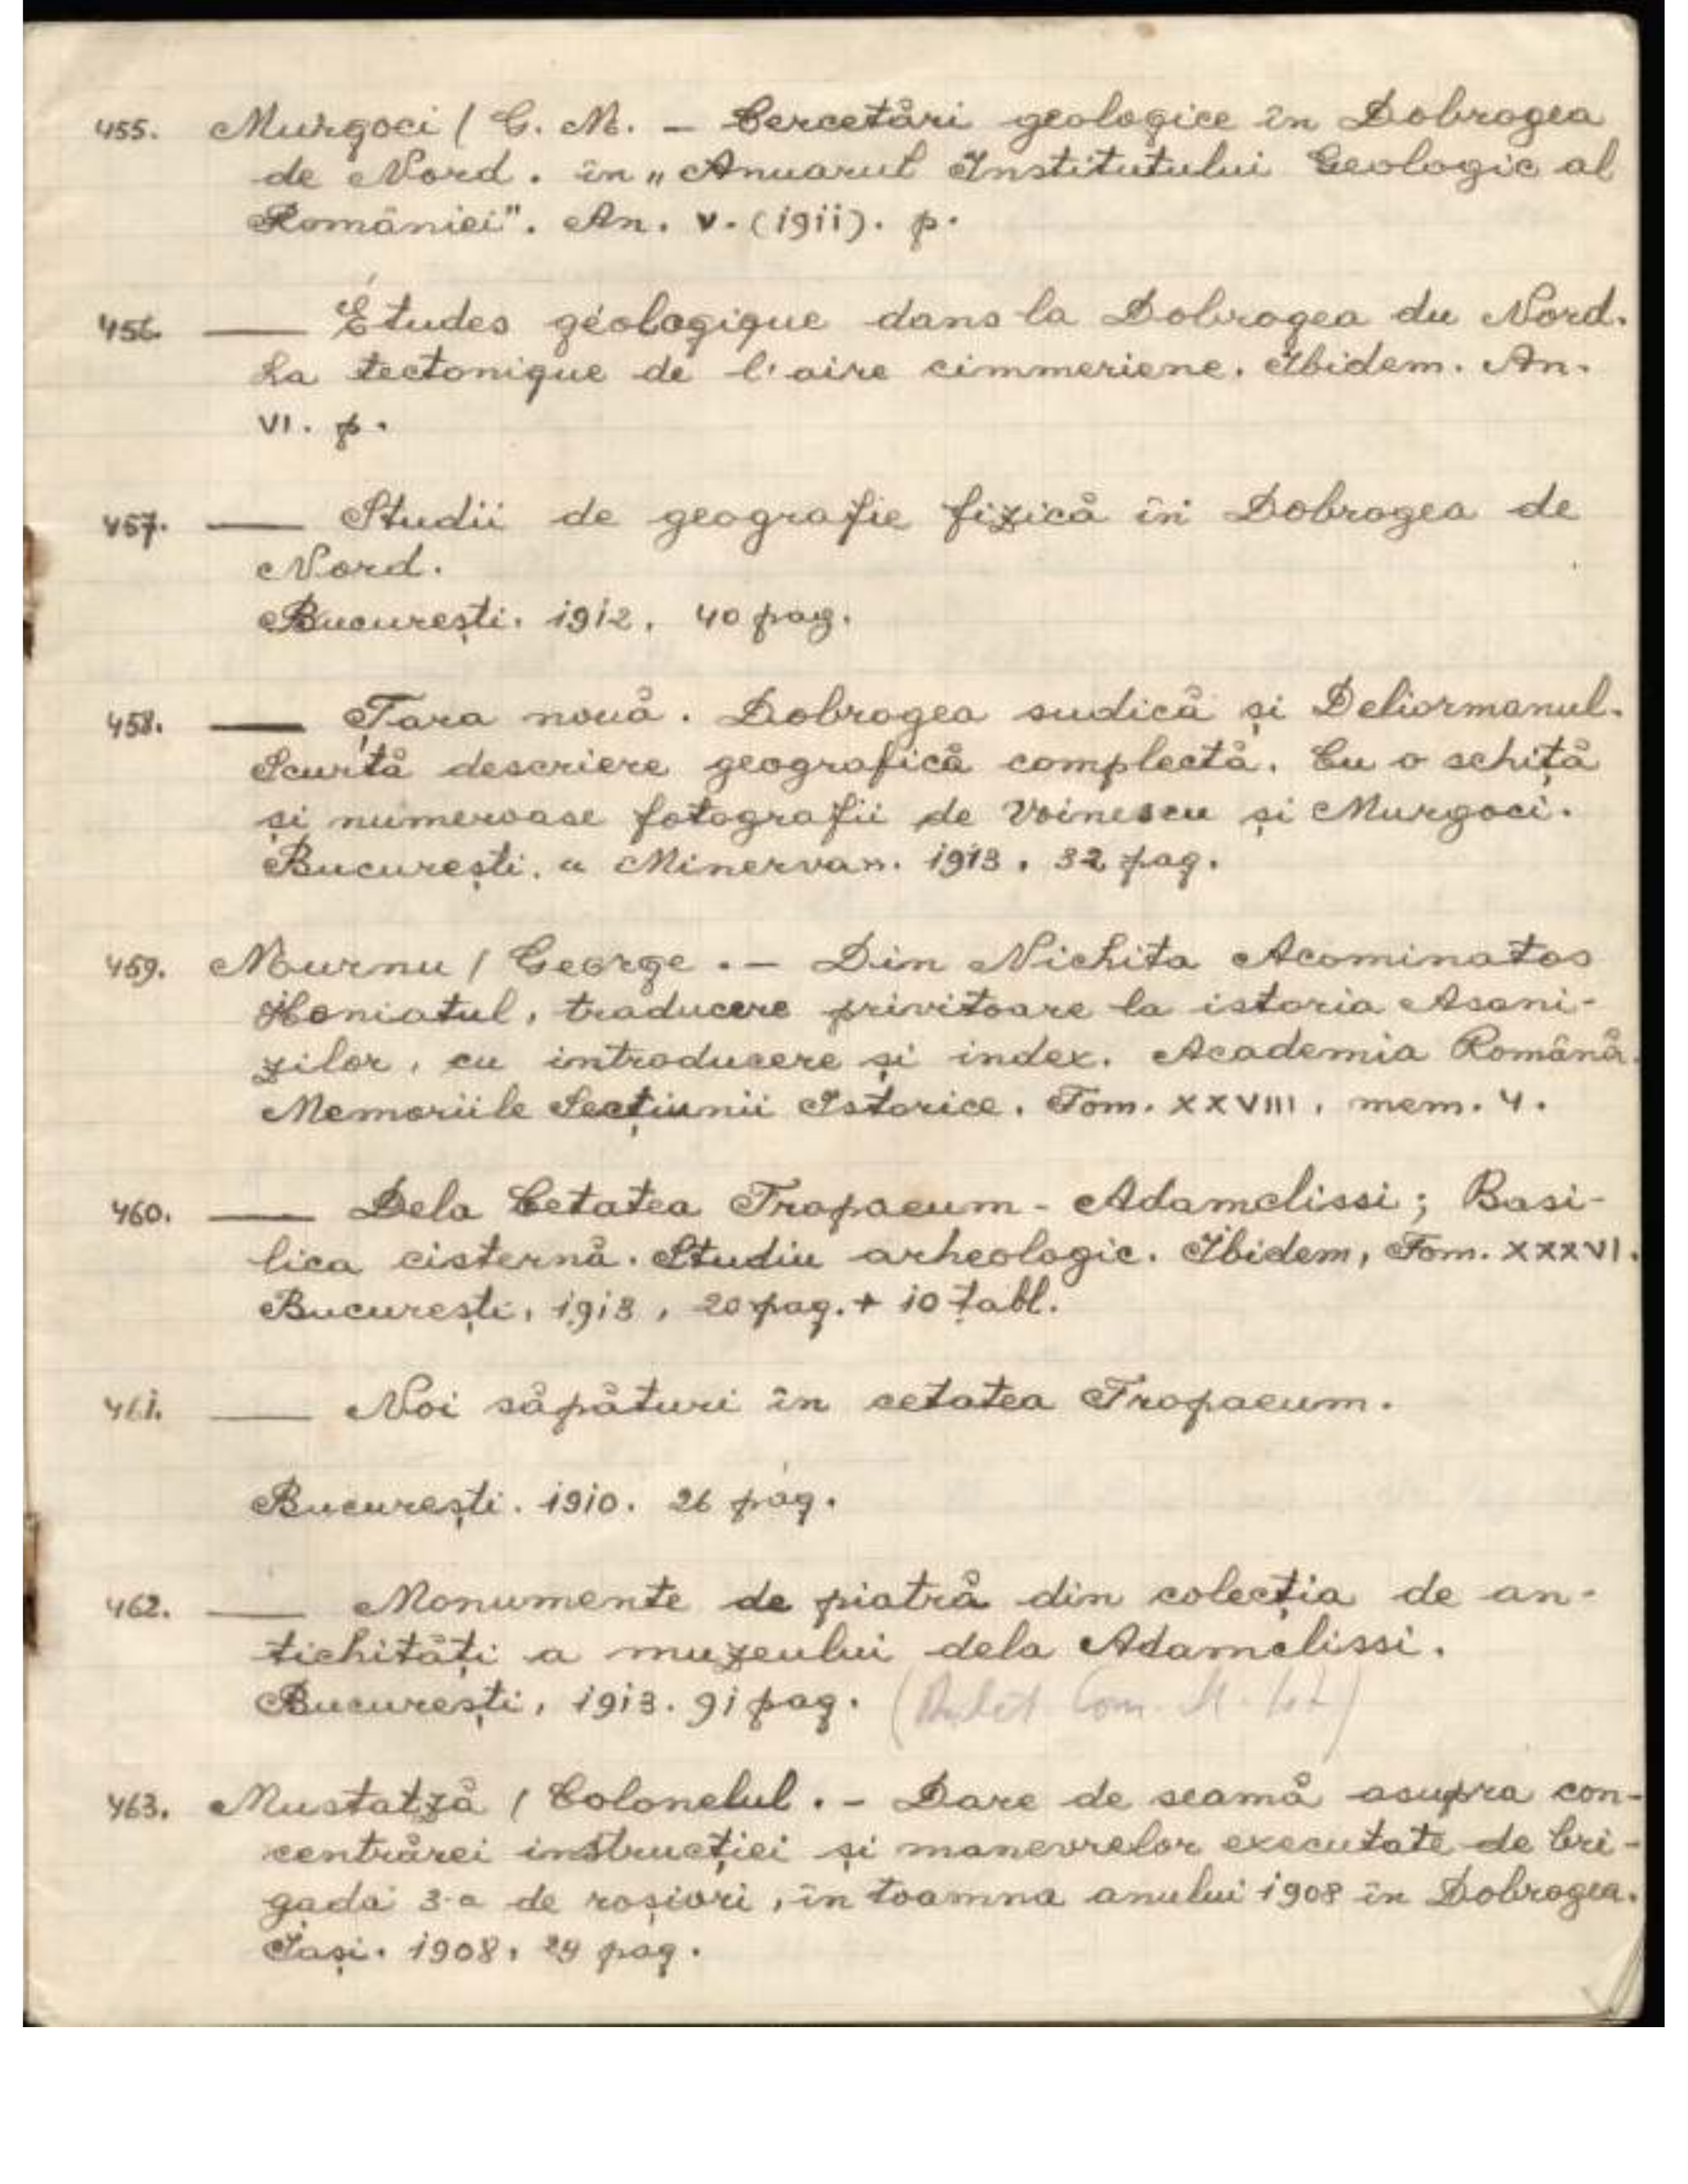 455. Murgoci / G. M. – Cercetări geologice în Dobrogea
de Nord. în „Anuarul Institutului Geologic al
României". An. V. (1911). p.
456. —— Études géologique dans la Dobrogea du Nord.
La tectonique de l'aire cimmeriene. Ibidem. An.
VI. p.
457. —— Studii de geografie fizică în Dobrogea de
Nord.
București. 1912. 40 pag.
458. —— Țara nouă. Dobrogea sudică și Deliormanul.
Scurtă descriere geografică complectă. Cu o schiță
și numeroase fotografii de Voinescu și Murgoci.
București. „Minerva". 1913. 32 pag.
459. Murnu / George. – Din Nichita Acominatos
Honiatul, traducere privitoare la istoria Asani-
zilor, cu introducere și index. Academia Română.
Memoriile Secțiunii Istorice. Tom. XXVIII, mem. 4.
460. —— Dela Cetatea Tropaeum - Adamclissi; Basi-
lica cisternă. Studiu arheologic. Ibidem, Tom. XXXVI.
București, 1913, 20 pag. + 10 tabl.
461. —— Noi săpături în cetatea Tropaeum.
București. 1910. 26 pag.
462. —— Monumente de piatră din colecția de an-
tichități a muzeului dela Adamclissi.
București, 1913. 91 pag.
463. Mustatză / Colonelul. – Dare de seamă asupra con-
centrărei instrucției și manevrelor executate de bri-
gada 3-a de roșiori, în toamna anului 1908 în Dobrogea.
Iași. 1908. 24 pag.